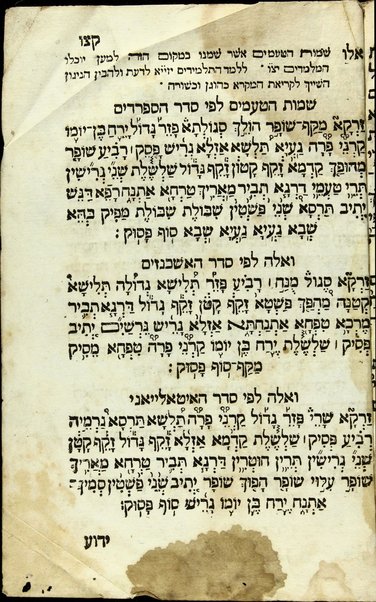 קצו
אלו שמות הטעמים אשר שמנו במקום הזה למען יוכלו
המלמדים יצו׳ ללמד התלמידים יזי״א לדעת ולהבין הניגון
השייך לקריאת המקרא כהוגן וכשורה
שמות הטעמים לפי סדר הספרדים
זרקא מקף־שופר הולך סגולתא פזר גדול ירח בן־יומו
קרני פרה געיא תלשא אזלא גריש פסק׀ רביע שופר
מהופך קדמא זקף קטון זקף גדול שלשלת שני גרישין
תרי טעמי דרגא תביר מאריך טרחא אתנח רפא דגש
יתיב תרסא שני פשטין שבולת שבולת מפיק בהא
שבא געיא געיא שבא סוף פסוק:
ואלה לפי סדר האשכנזים
זרקא סגול מנח׀ רביע פזר תלישא גדולה תלישא
קטנה מהפך פשטא זקף קטן זקף גדול דרגא תביר
מרכא טפחא אתנחתא אזלא גריש גרשים יתיב
פסיק׀ שלשלת ירח בן יומו קרני פרה טפחא מסיק
מקף־סוף פסוק:
ואלה לפי סדר האיטאלייאני
זרקא שרי פזר גדול קרני פרה תלשא תרסא נרמיה
רביע פסיק׀ שלשלת קדמא אזלא זקף גדול זקף קטן
שני גרישין תרין חוטרין דרגא תביר טרחא מאריך
שופר עלוי שופר הפוך שופר יתיב שני פשטין סמיך
אתנח ירח בן יומו גריש סוף פסוק:
ידוע